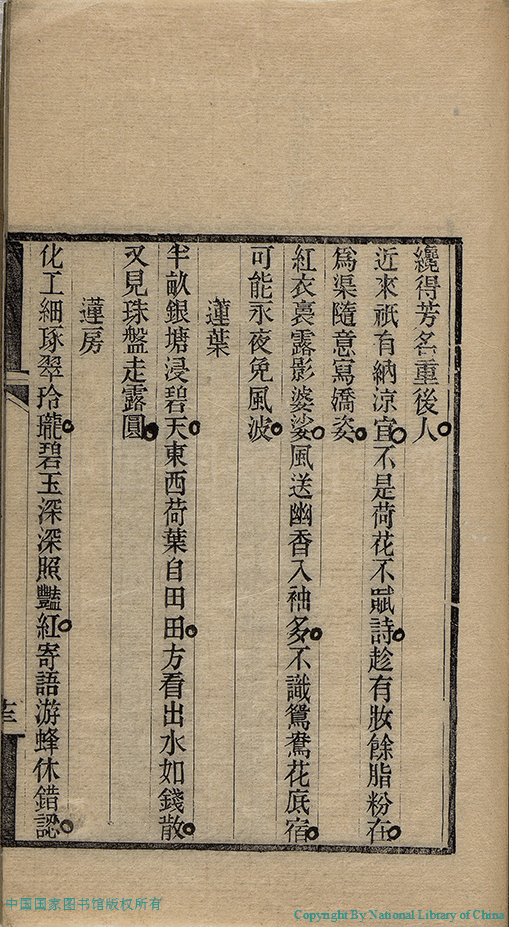 纔得芳名重後人
近來祇有納涼宜不是荷花不賦詩趁有妝餘脂粉在
爲渠隨意寫嬌姿
紅衣裛露影婆娑風送幽香入袖多不識鴛鴦花底宿
可能永夜免風波
蓮葉
半畝銀塘浸碧天東西荷葉自田田方看出水如錢散
又見珠盤走露圓
蓮房
化工細琢翠玲瓏碧玉深深照豔紅寄語游蜂休錯認
中国国家图书馆版权所有
Copyright By National Library of China